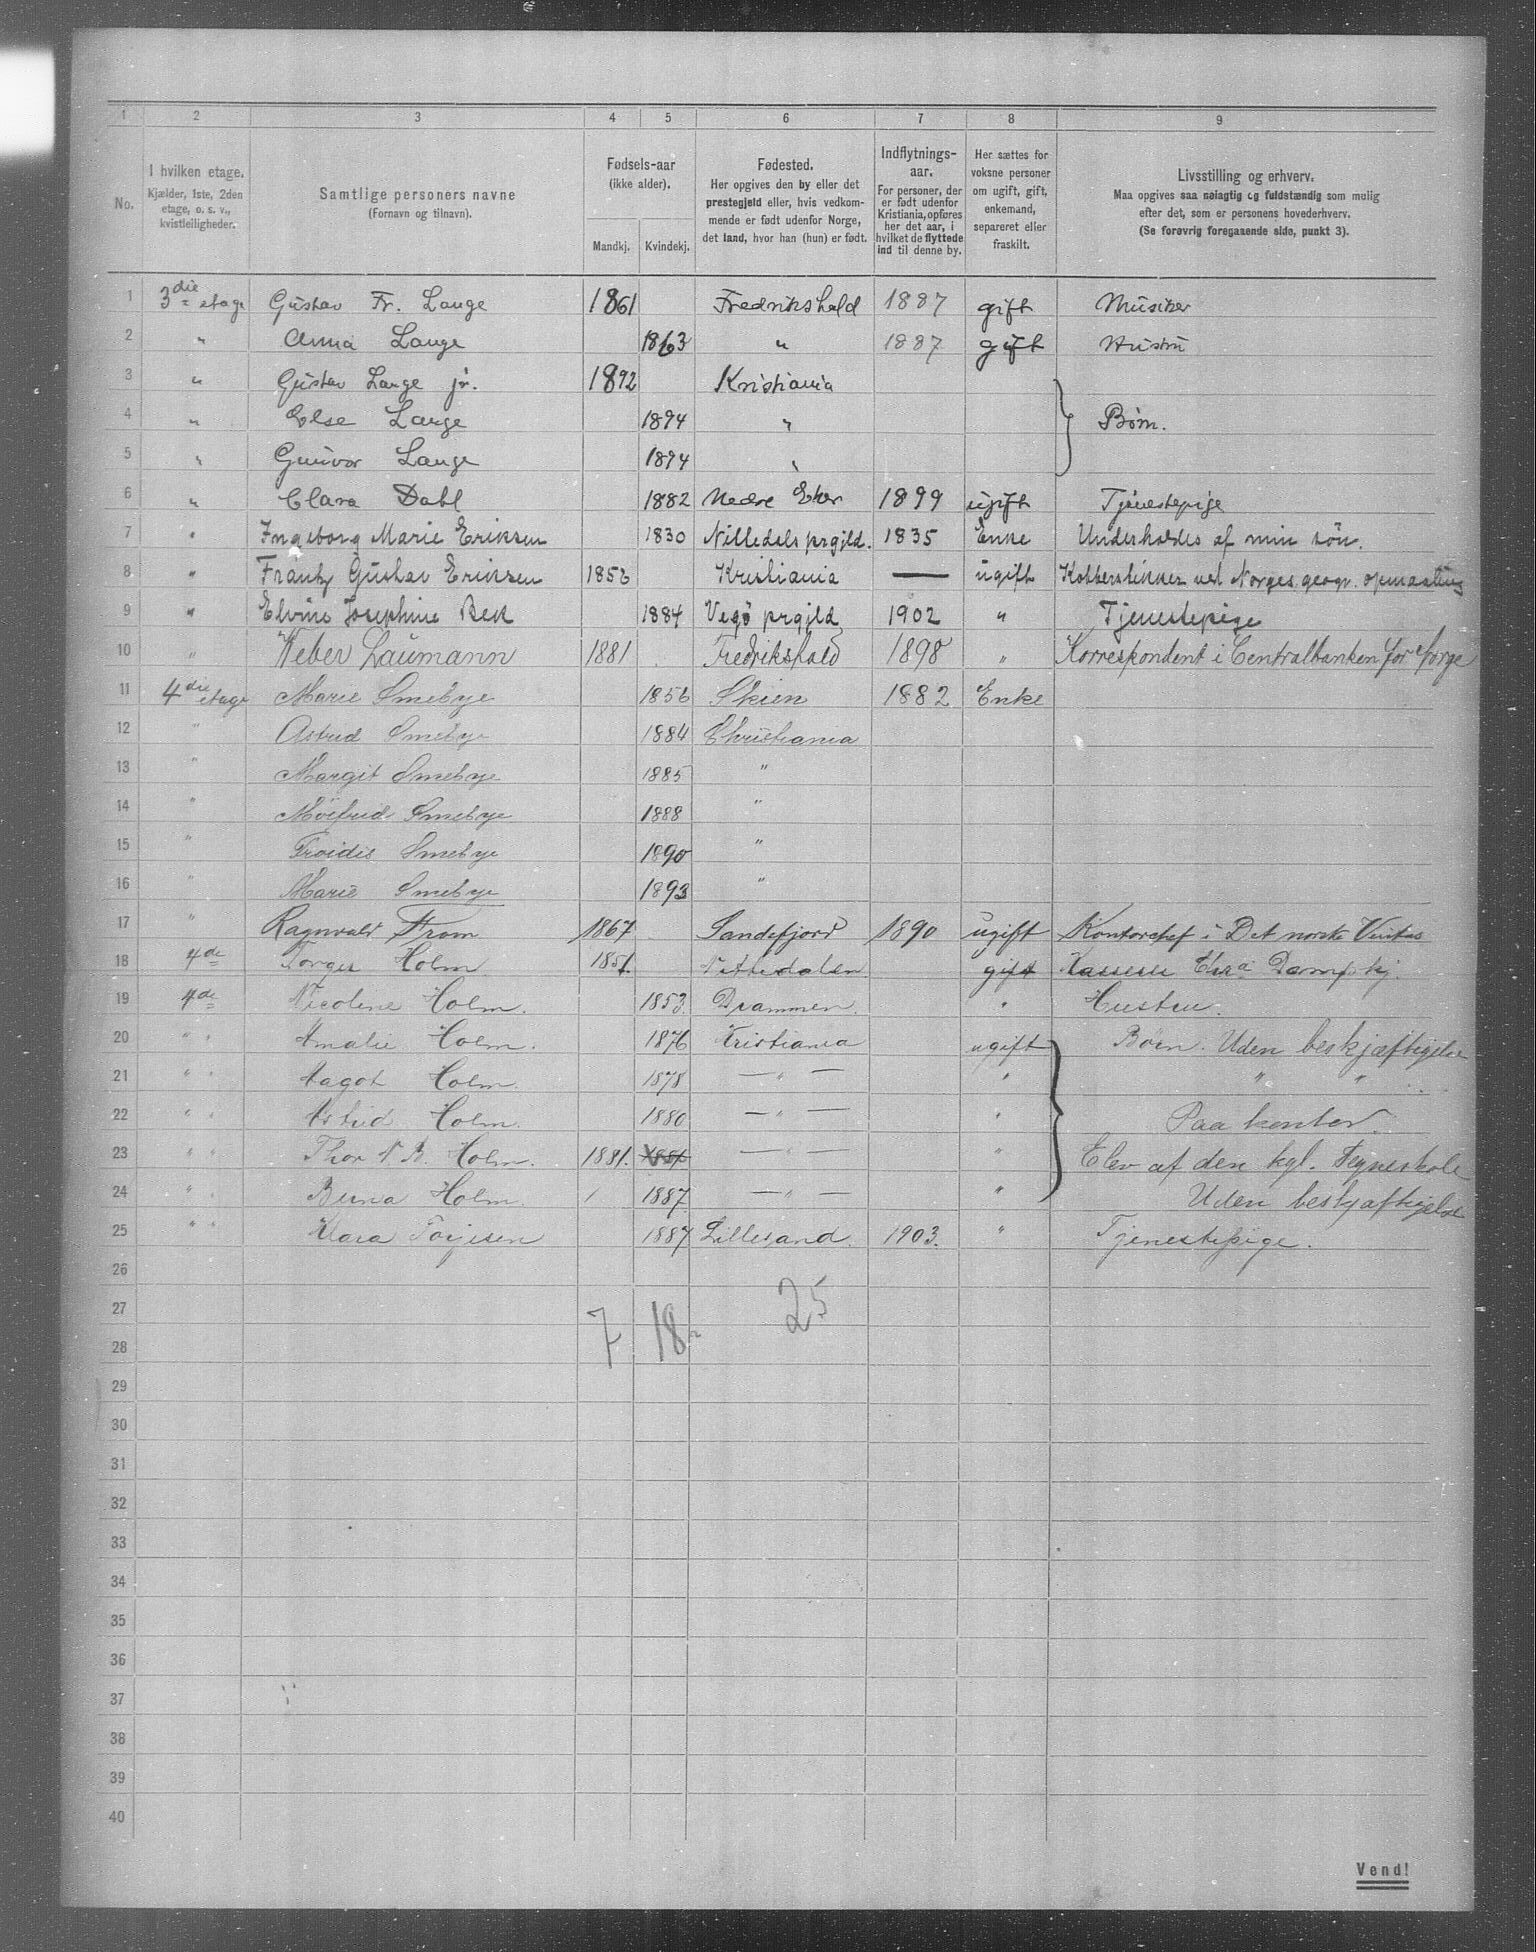 1 2 3 4 5 6 7 8 9
No. I hvilken etage. Kjælder, 1ste, 2den etage, o. s. v., kvistleiligheder. Samtlige personers navne (Fornavn og tilnavn). Fødsels-aar (ikke alder). Mandkj. Kvindekj. Fødested. Her opgives den by eller det prestegjeld eller, hvis vedkommende er født udenfor Norge, det land, hvor han (hun) er født. Indflytnings-aar. For personer, der er født udenfor Kristiania, opføres her det aar, i hvilket de flyttede ind til denne by. Her sættes for voksne personer om ugift, gift, enkemand, separeret eller fraskilt. Livsstilling og erhverv. Maa opgives saa nøiagtig og fuldstændig som mulig efter det, som er personens hovederhverv. (Se forøvrig foregaaende side, punkt 3).
1 3die etage Gustav Fr. Lange 1861 Fredrikshald 1887 gift Musiker
2 " Anna Lange 1863 " 1887 gift Hustru
3 " Gustav Lange jr. 1892 Kristiania
4 " Else Lange 1894 " Børn.
5 " Gunvor Lange 1894 "
6 " Clara Dahl 1882 Nedre Eker 1899 ugift Tjenestepige
7 " Ingeborg Marie Eriksen 1830 Nittedals prgjld. 1835 Enke Underholdes af min søn.
8 " Frantz Gustav Eriksen 1852 Kristiania — ugift Kobberstikker ved Norges geogr. opmaaling
9 " Elvine Josephine Bek 1884 Vegø prgjld 1902 " Tjenestepige
10 " Weber Laumann 1881 Fredrikshald 1898 " Korrespondent i Centralbanken for Norge
11 4die etage Marie Smebye 1856 Skien 1882 Enke
12 " Astrid Smebye 1884 Christiania
13 " Margit Smebye 1885 "
14 " Møifrid Smebye 1888 "
15 " Froidis Smebye 1890 "
16 " Marie Smebye 1893 "
17 " Ragnvald From 1867 Sandefjord 1890 ugift Kontorchef i Det norske Veritas
18 4de Torger Holm 1851. Nittedalen gift Kasserer Chra Dampskj.
19 4de Nicoline Holm. 1853. Drammen. " Hustru.
20 " " Amalie Holm. 1876 Kristiania ugift Børn. Uden beskjæftigelse
21 " " Aagot Holm. 1878 — " — " " "
22 " " Astrid Holm. 1880 — " — " Paa kontor.
23 " " Thor N. B. Holm. 1881. — " — " Elev af den kgl. Tegneskole
24 " " Berna Holm. 1887 — " — " Uden beskjæftigelse
25 " " Klara Torjesen 1887 Lillesand. 1903. " Tjenestepige.
26
27 7 18 25
28
29
30
31
32
33
34
35
36
37
38
39
40
Vend!